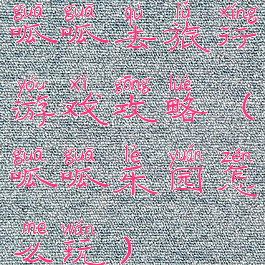 guā guā qù lǚ xíng
呱呱去旅行
yóu xì gōng lüè
游戏攻略（
guā guā lè yuán zěn
呱呱乐园怎
me wán
么玩）